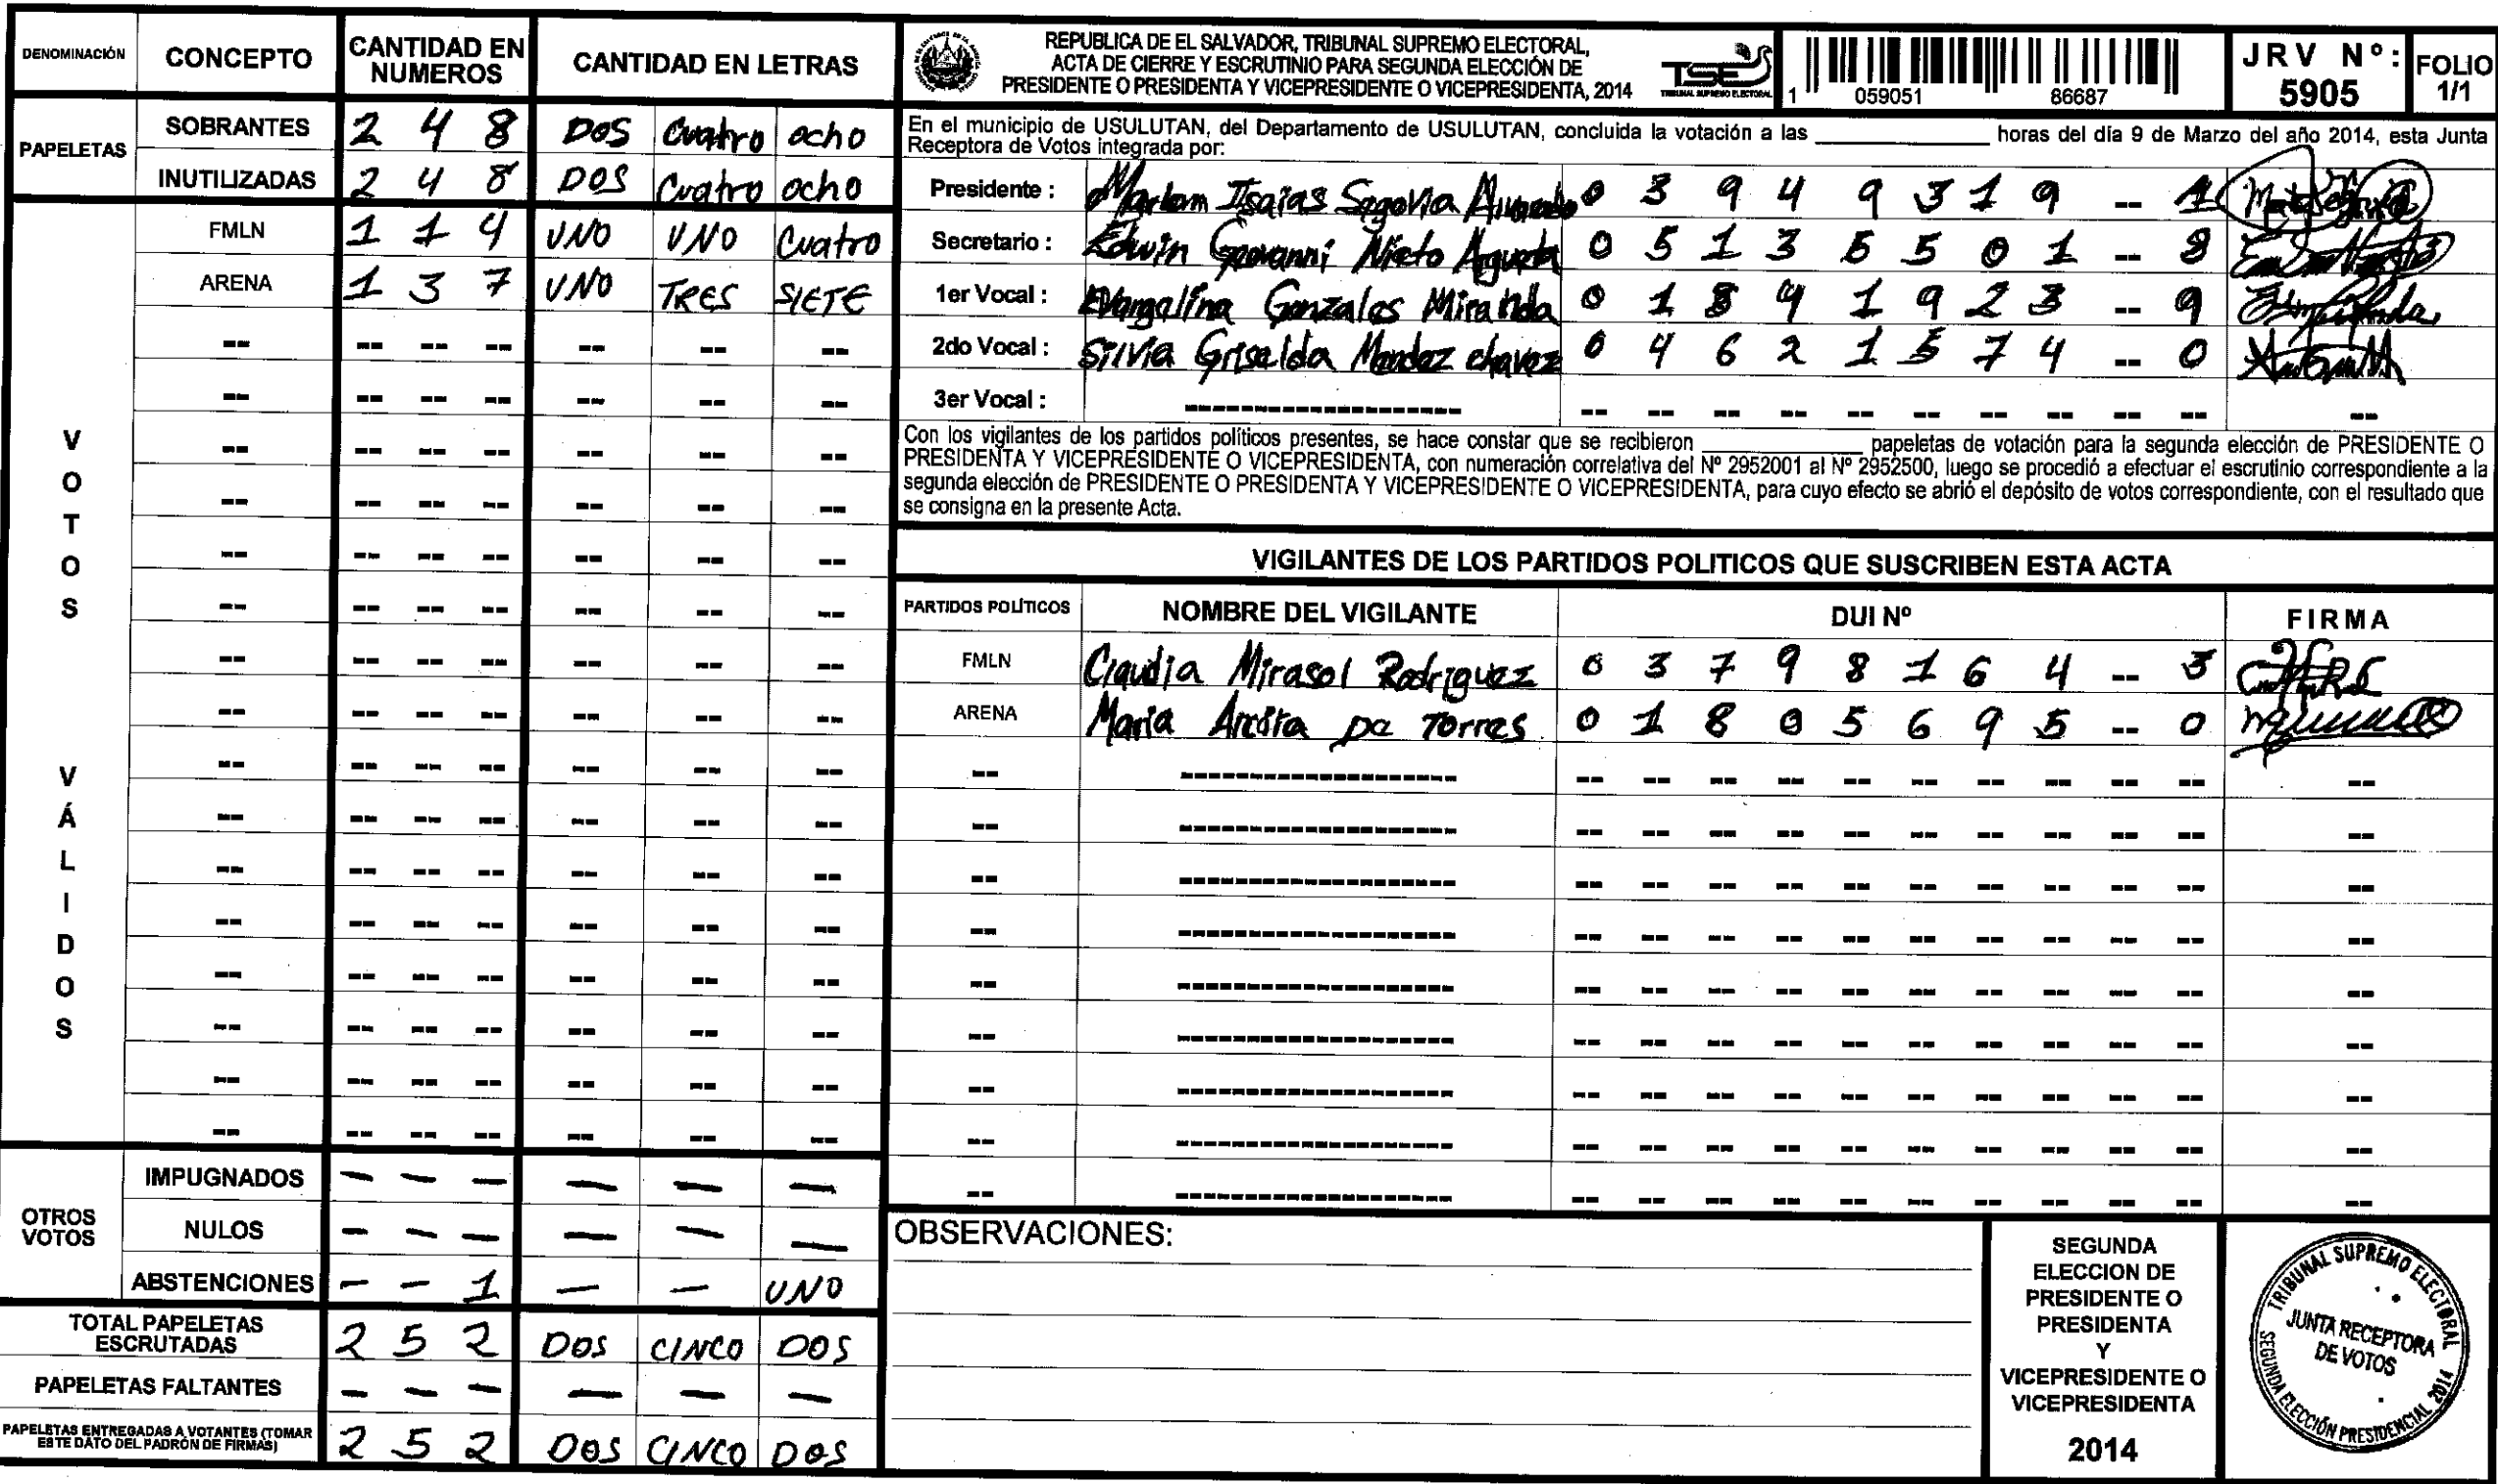 DENOMINACIÓN CONCEPTO CANTIDAD EN NUMEROS CANTIDAD EN LETRAS
PAPELETAS
SOBRANTES 2 4 8 DOS Cuatro ocho
INUTILIZADAS 2 4 8 DOS Cuatro ocho
VOTOS VÁLIDOS
FMLN 1 1 4 UNO UNO Cuatro
ARENA 1 3 7 UNO TRES SIETE
OTROS VOTOS
IMPUGNADOS — — — — — —
NULOS — — — — — —
ABSTENCIONES — — 1 — — UNO
TOTAL PAPELETAS ESCRUTADAS 2 5 2 DOS CINCO DOS
PAPELETAS FALTANTES — — — — — —
PAPELETAS ENTREGADAS A VOTANTES (TOMAR ESTE DATO DEL PADRÓN DE FIRMAS) 2 5 2 DOS CINCO DOS
REPUBLICA DE EL SALVADOR, TRIBUNAL SUPREMO ELECTORAL,
ACTA DE CIERRE Y ESCRUTINIO PARA SEGUNDA ELECCIÓN DE
PRESIDENTE O PRESIDENTA Y VICEPRESIDENTE O VICEPRESIDENTA, 2014
TSE
TRIBUNAL SUPREMO ELECTORAL
1 059051 86687
JRV Nº: 5905
FOLIO 1/1
En el municipio de USULUTAN, del Departamento de USULUTAN, concluida la votación a las ____ horas del día 9 de Marzo del año 2014, esta Junta
Receptora de Votos integrada por:
Presidente : Marlom Isaias Segovia Alvarado 0 3 9 4 9 3 1 9 -- 1
Secretario : Edwin Geovanni Nieto Argueta 0 5 1 3 5 5 0 1 -- 8
1er Vocal : Evangelina Gonzales Miranda 0 1 8 4 1 9 2 3 -- 9
2do Vocal : Silvia Griselda Mendez chavez 0 4 6 2 1 5 7 4 -- 0
3er Vocal :
Con los vigilantes de los partidos políticos presentes, se hace constar que se recibieron ____ papeletas de votación para la segunda elección de PRESIDENTE O
PRESIDENTA Y VICEPRESIDENTE O VICEPRESIDENTA, con numeración correlativa del Nº 2952001 al Nº 2952500, luego se procedió a efectuar el escrutinio correspondiente a la
segunda elección de PRESIDENTE O PRESIDENTA Y VICEPRESIDENTE O VICEPRESIDENTA, para cuyo efecto se abrió el depósito de votos correspondiente, con el resultado que
se consigna en la presente Acta.
VIGILANTES DE LOS PARTIDOS POLITICOS QUE SUSCRIBEN ESTA ACTA
PARTIDOS POLÍTICOS NOMBRE DEL VIGILANTE DUI Nº FIRMA
FMLN Claudia Mirasol Rodriguez 0 3 7 9 8 1 6 4 -- 3
ARENA Maria De Torres 0 1 8 0 5 6 9 5 -- 0
OBSERVACIONES:
SEGUNDA
ELECCION DE
PRESIDENTE O
PRESIDENTA
Y
VICEPRESIDENTE O
VICEPRESIDENTA
2014
TRIBUNAL SUPREMO ELECTORAL
JUNTA RECEPTORA
DE VOTOS
SEGUNDA ELECCIÓN PRESIDENCIAL 2014